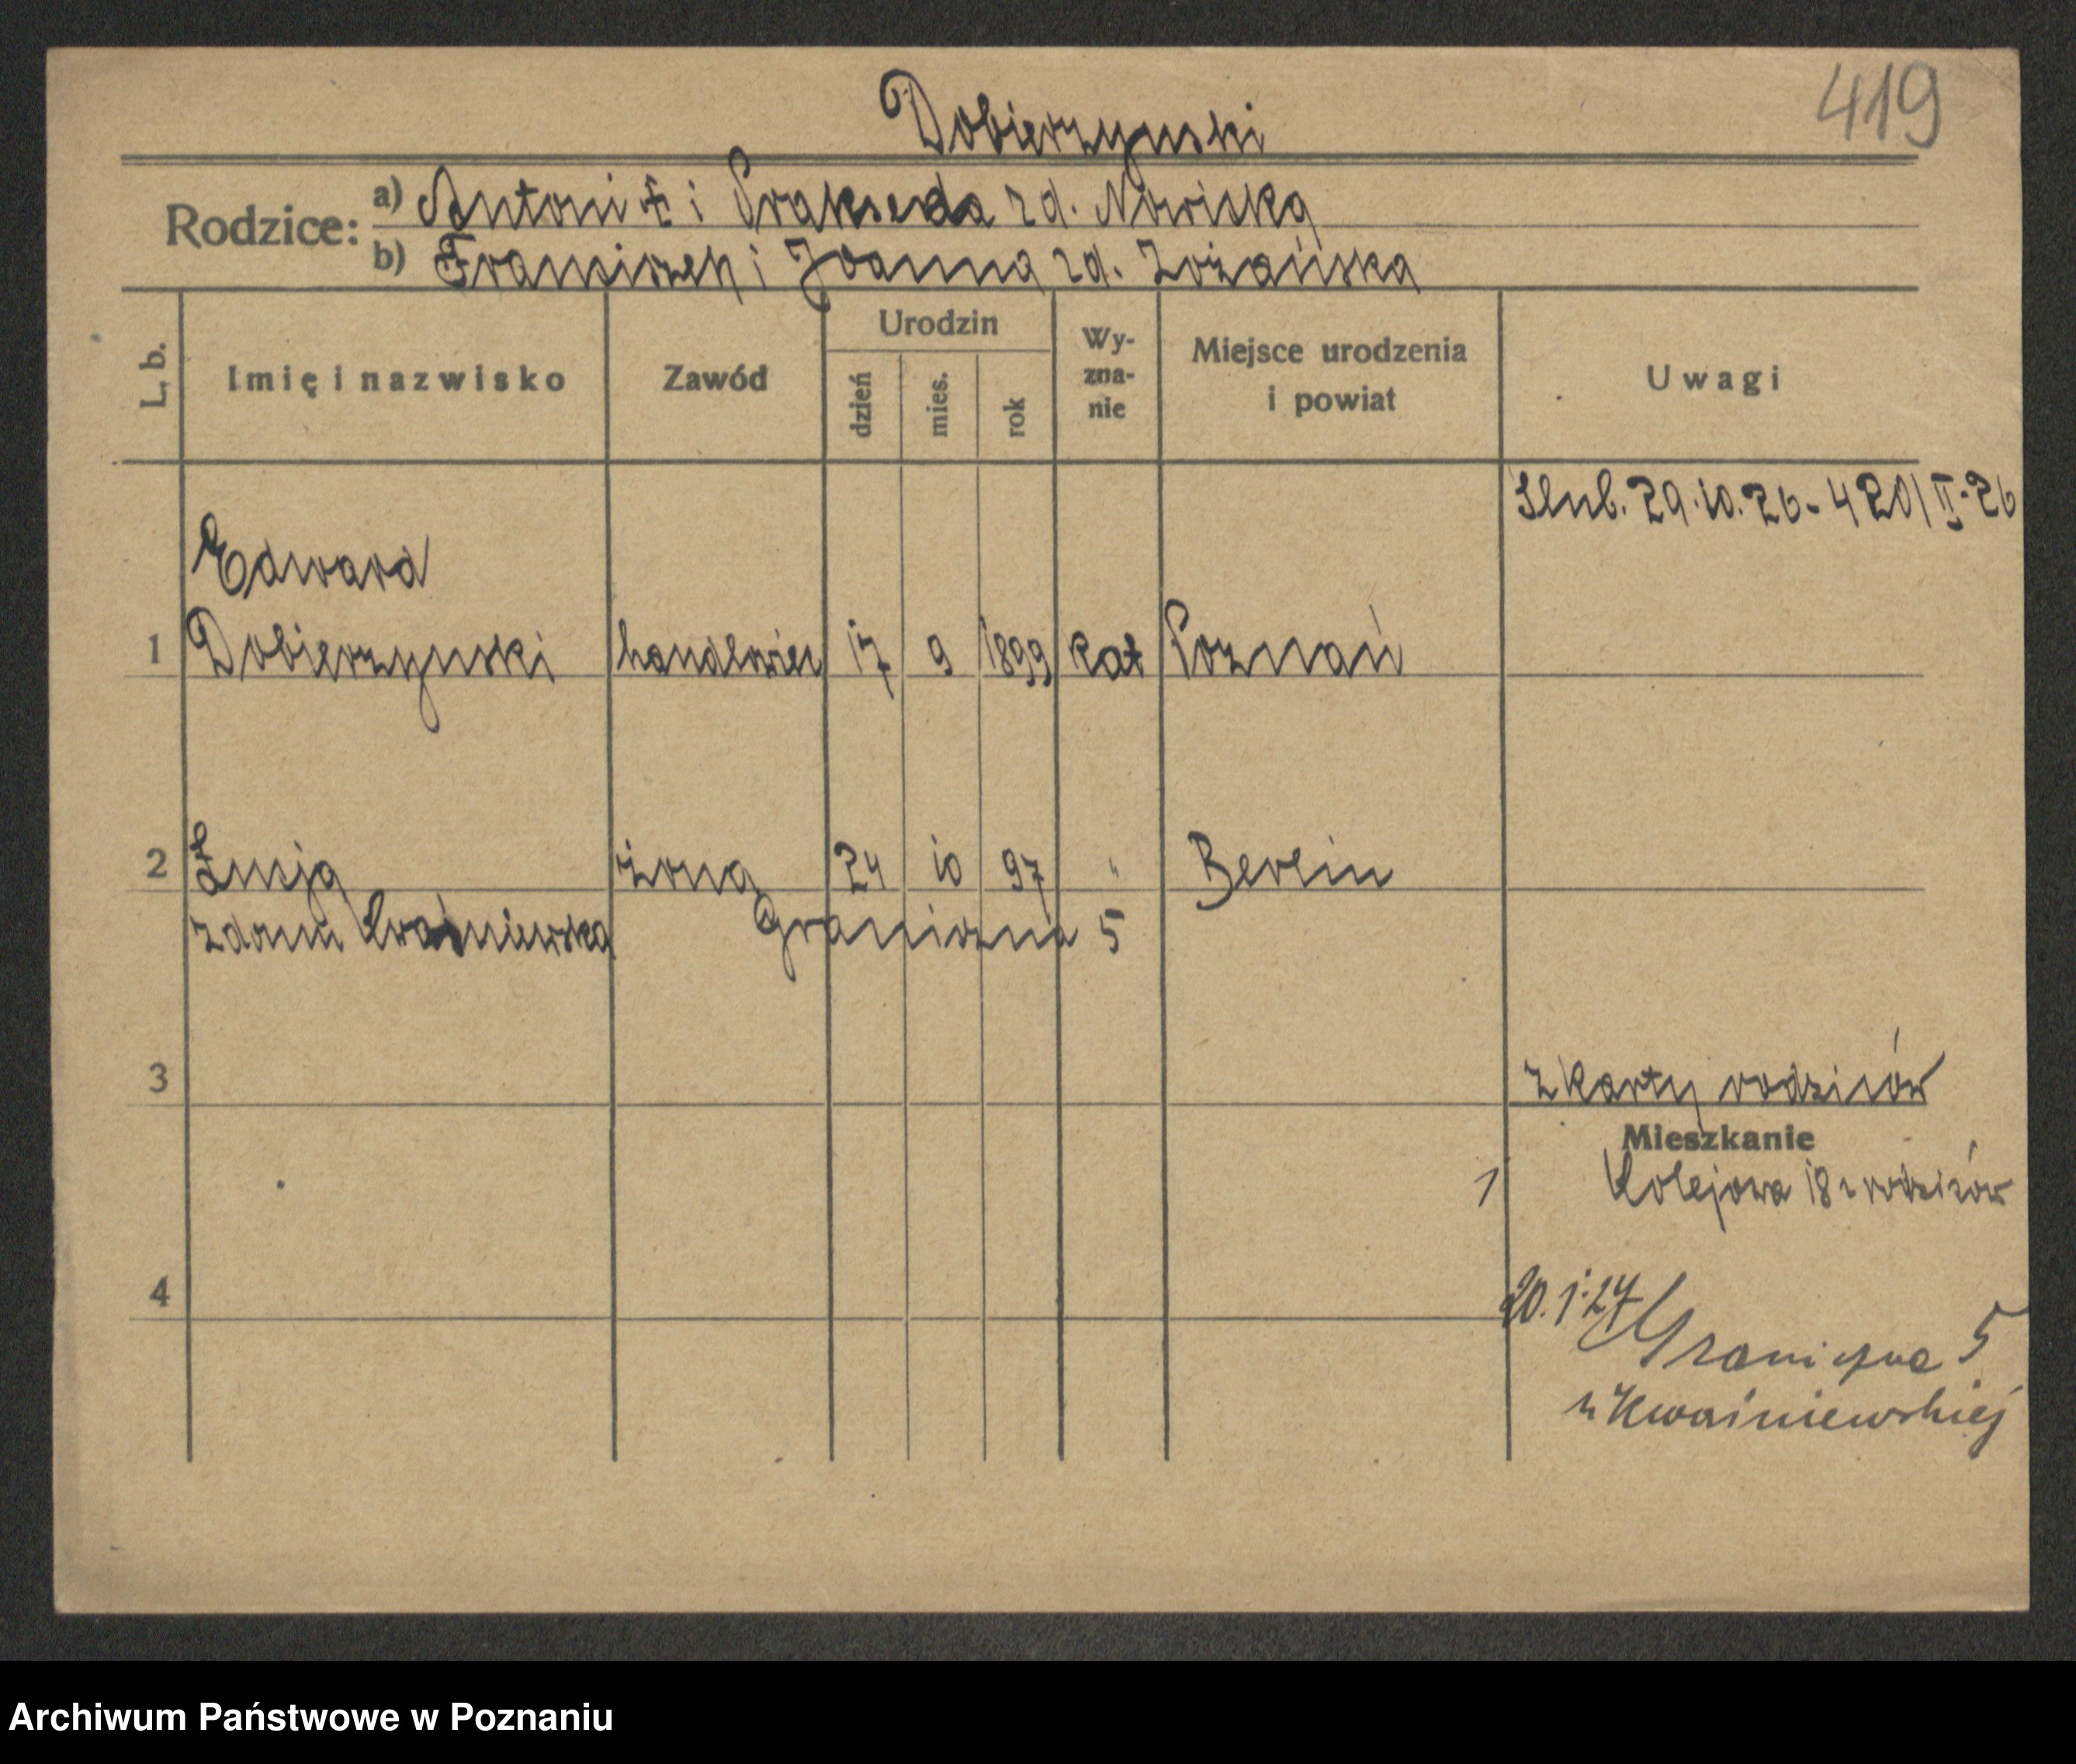 419
Dobierzynski
Rodzice: a) Antoni † i Prakseda zd. Nowicka
b) Franciszek i Joanna zd.
L. b. Imię i nazwisko Zawód Urodzin dzień mies. rok Wy-zna-nie Miejsce urodzenia i powiat Uwagi
Slub. 29.10.26 - 420/II.26
Edward
1 Dobierzynski handlowiec 17 9 1899 kat Poznań
2 Łucja żona 24 10 97 " Berlin
z domu Kwaśniewska Graniczna 5
3 z karty rodziców
Mieszkanie
1 Kolejowa 18 u rodziców
4 20.1.27 Graniczna 5
u Kwaśniewskiej
Archiwum Państwowe w Poznaniu